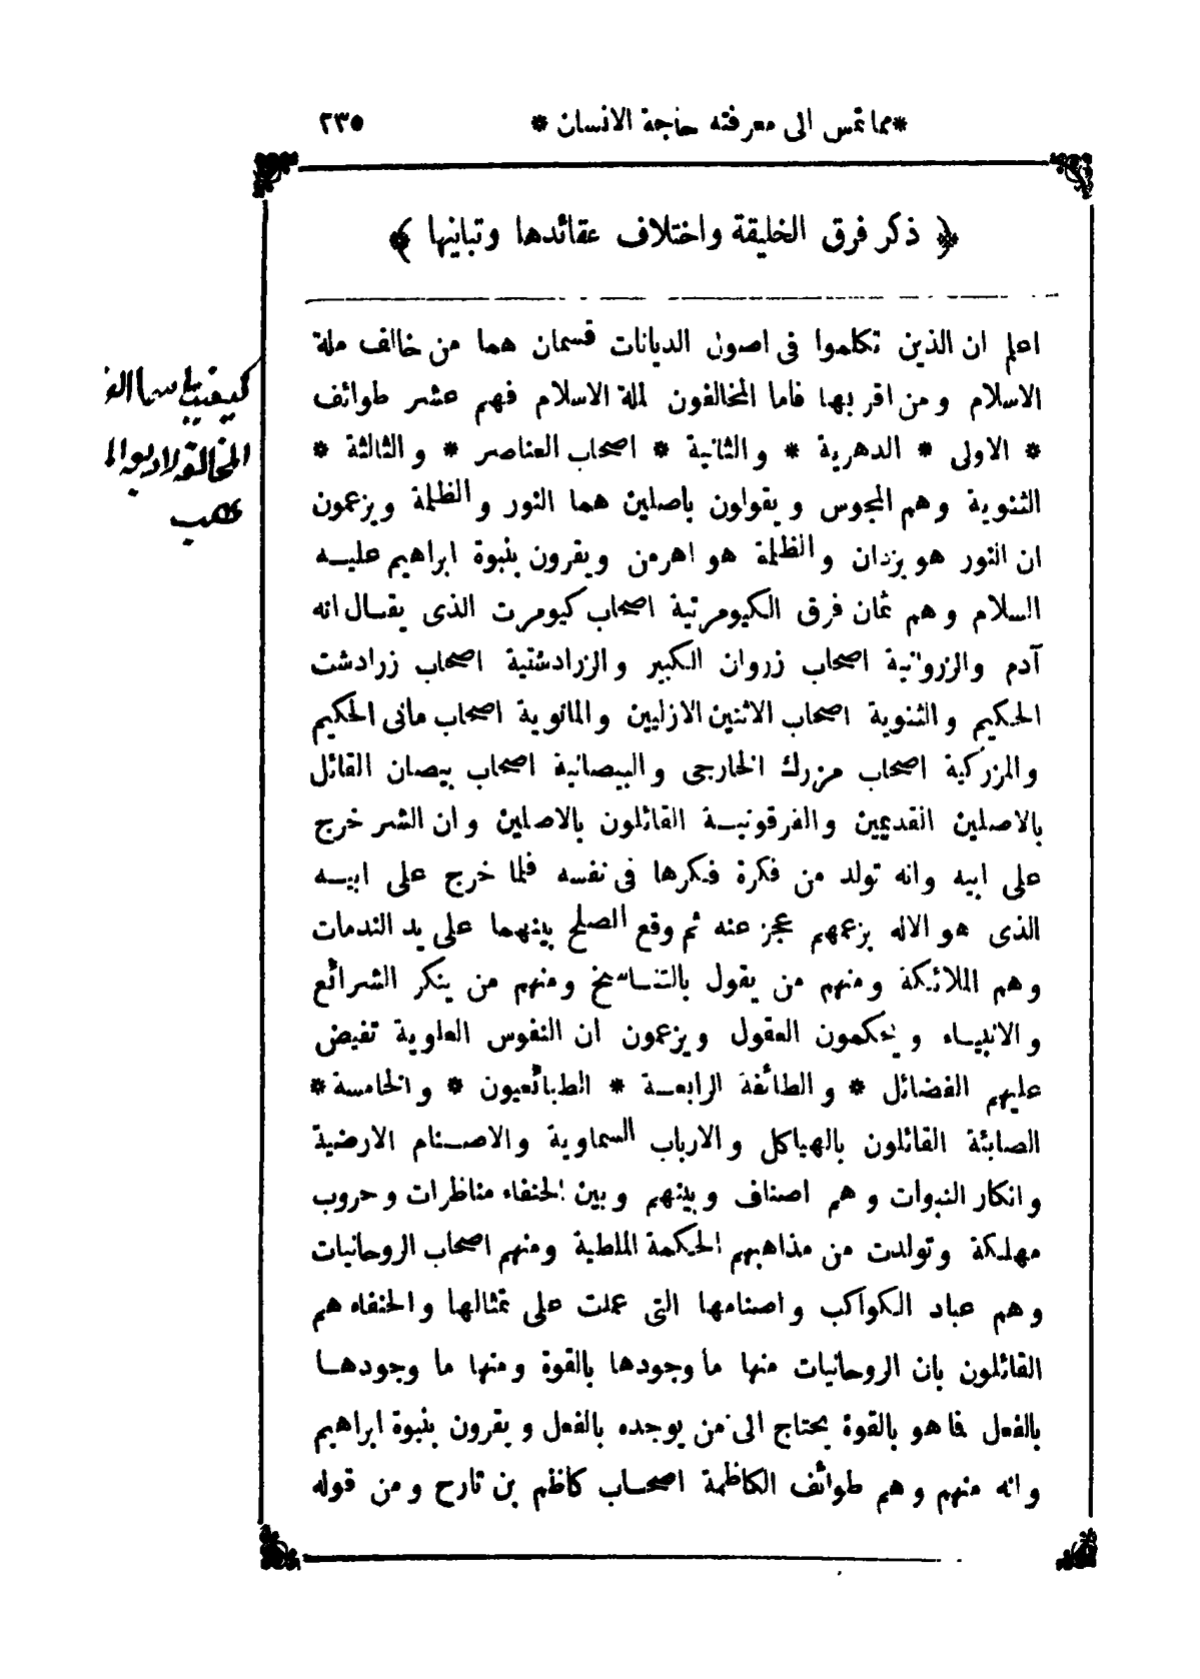 * مما تمس الى معرفته حاجة الانسان * ٢٣٥
﴿ ذكر فرق الخليقة واختلاف عقائدها وتباينها ﴾
اعلم ان الذين تكلموا فى اصول الديانات قسمان هما من خالف ملة
الاسلام ومن اقر بها فاما المخالفون لملة الاسلام فهم عشر طوائف
* الاولى * الدهرية * والثانية * اصحاب العناصر * والثالثة *
الثنوية وهم المجوس ويقولون باصلين هما النور والظلمة ويزعمون
ان النور هو يزدان والظلمة هو اهرمن ويقرون بنبوة ابراهيم عليه
السلام وهم ثمان فرق الكيومرتية اصحاب كيومرت الذى يقال انه
آدم والزروانية اصحاب زروان الكبير والزرادشتية اصحاب زرادشت
الحكيم والثنوية اصحاب الاثنين الازليين والمانوية اصحاب مانى الحكيم
والمزركية اصحاب مزرك الخارجى والبيصانية اصحاب بيصان القائل
بالاصلين القديمين والفرقونية القائلون بالاصلين وان الشر خرج
على ابيه وانه تولد من فكرة فكرها فى نفسه فلما خرج على ابيه
الذى هو الاله بزعمهم عجز عنه ثم وقع الصلح بينهما على يد الندمات
وهم الملائكة ومنهم من يقول بالتناسخ ومنهم من ينكر الشرائع
والانبياء ويحكمون العقول ويزعمون ان النفوس العلوية تفيض
عليهم الفضائل * والطائفة الرابعة * الطبائعيون * والخامسة *
الصابئة القائلون بالهياكل والارباب السماوية والاصنام الارضية
وانكار النبوات وهم اصناف وبينهم وبين الحنفاء مناظرات وحروب
مهلكة وتولدت من مذاهبهم الحكمة الملطية ومنهم اصحاب الروحانيات
وهم عباد الكواكب واصنامها التى عملت على تمثالها والحنفاء هم
القائلون بان الروحانيات منها ما وجودها بالقوة ومنها ما وجودها
بالفعل فما هو بالقوة يحتاج الى من يوجده بالفعل ويقرون بنبوة ابراهيم
وانه منهم وهم طوائف الكاظمة اصحاب كاظم بن تارح ومن قوله